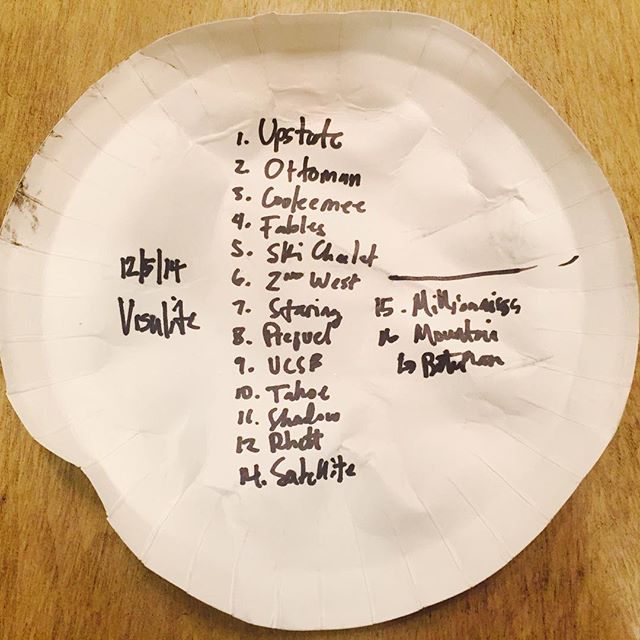 12/5/14
Visulite
1. Upstate
2. Ottoman
3. Cooleemee
4. Fables
5. Ski Chalet
6. 2nd West
7. Staring
8. Prequel
9. UCSB
10. Tahoe
11. Shadow
12 Rhett
14. Satellite
15. Millionaires
16 Mountain